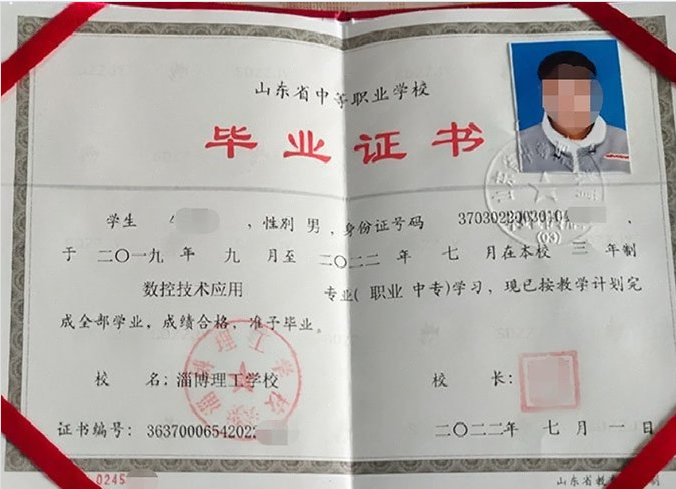 山东省中等职业学校
毕业证书
学生 ，性别 男，身份证号码 37030220030104 ，
于 二〇一九 年 九 月至 二〇二二 年 七 月在本校 三 年制
数控技术应用 专业( 职业 中专)学习，现已按教学计划完
成全部学业，成绩合格，准予毕业。
校 名：淄博理工学校 校 长：
证书编号：36370006542022 二〇二二年 七 月 一 日
0245 山东省教